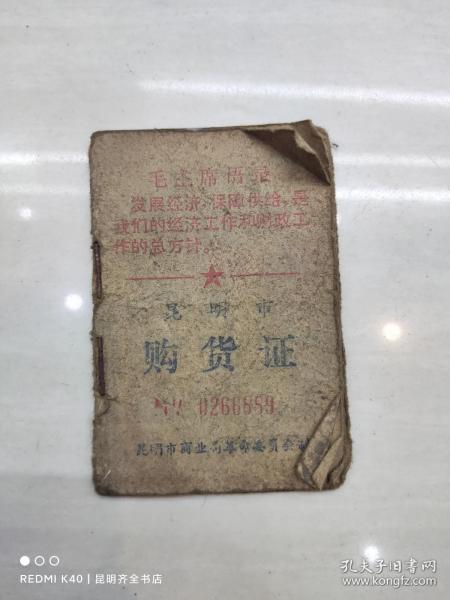 毛主席语录
发展经济,保障供给,是
我们的经济工作和财政工
作的总方针。
昆明市
购货证
№ 0266859
昆明市商业局革命委员会
REDMI K40 | 昆明齐全书店
孔夫子旧书网
www.kongfz.com